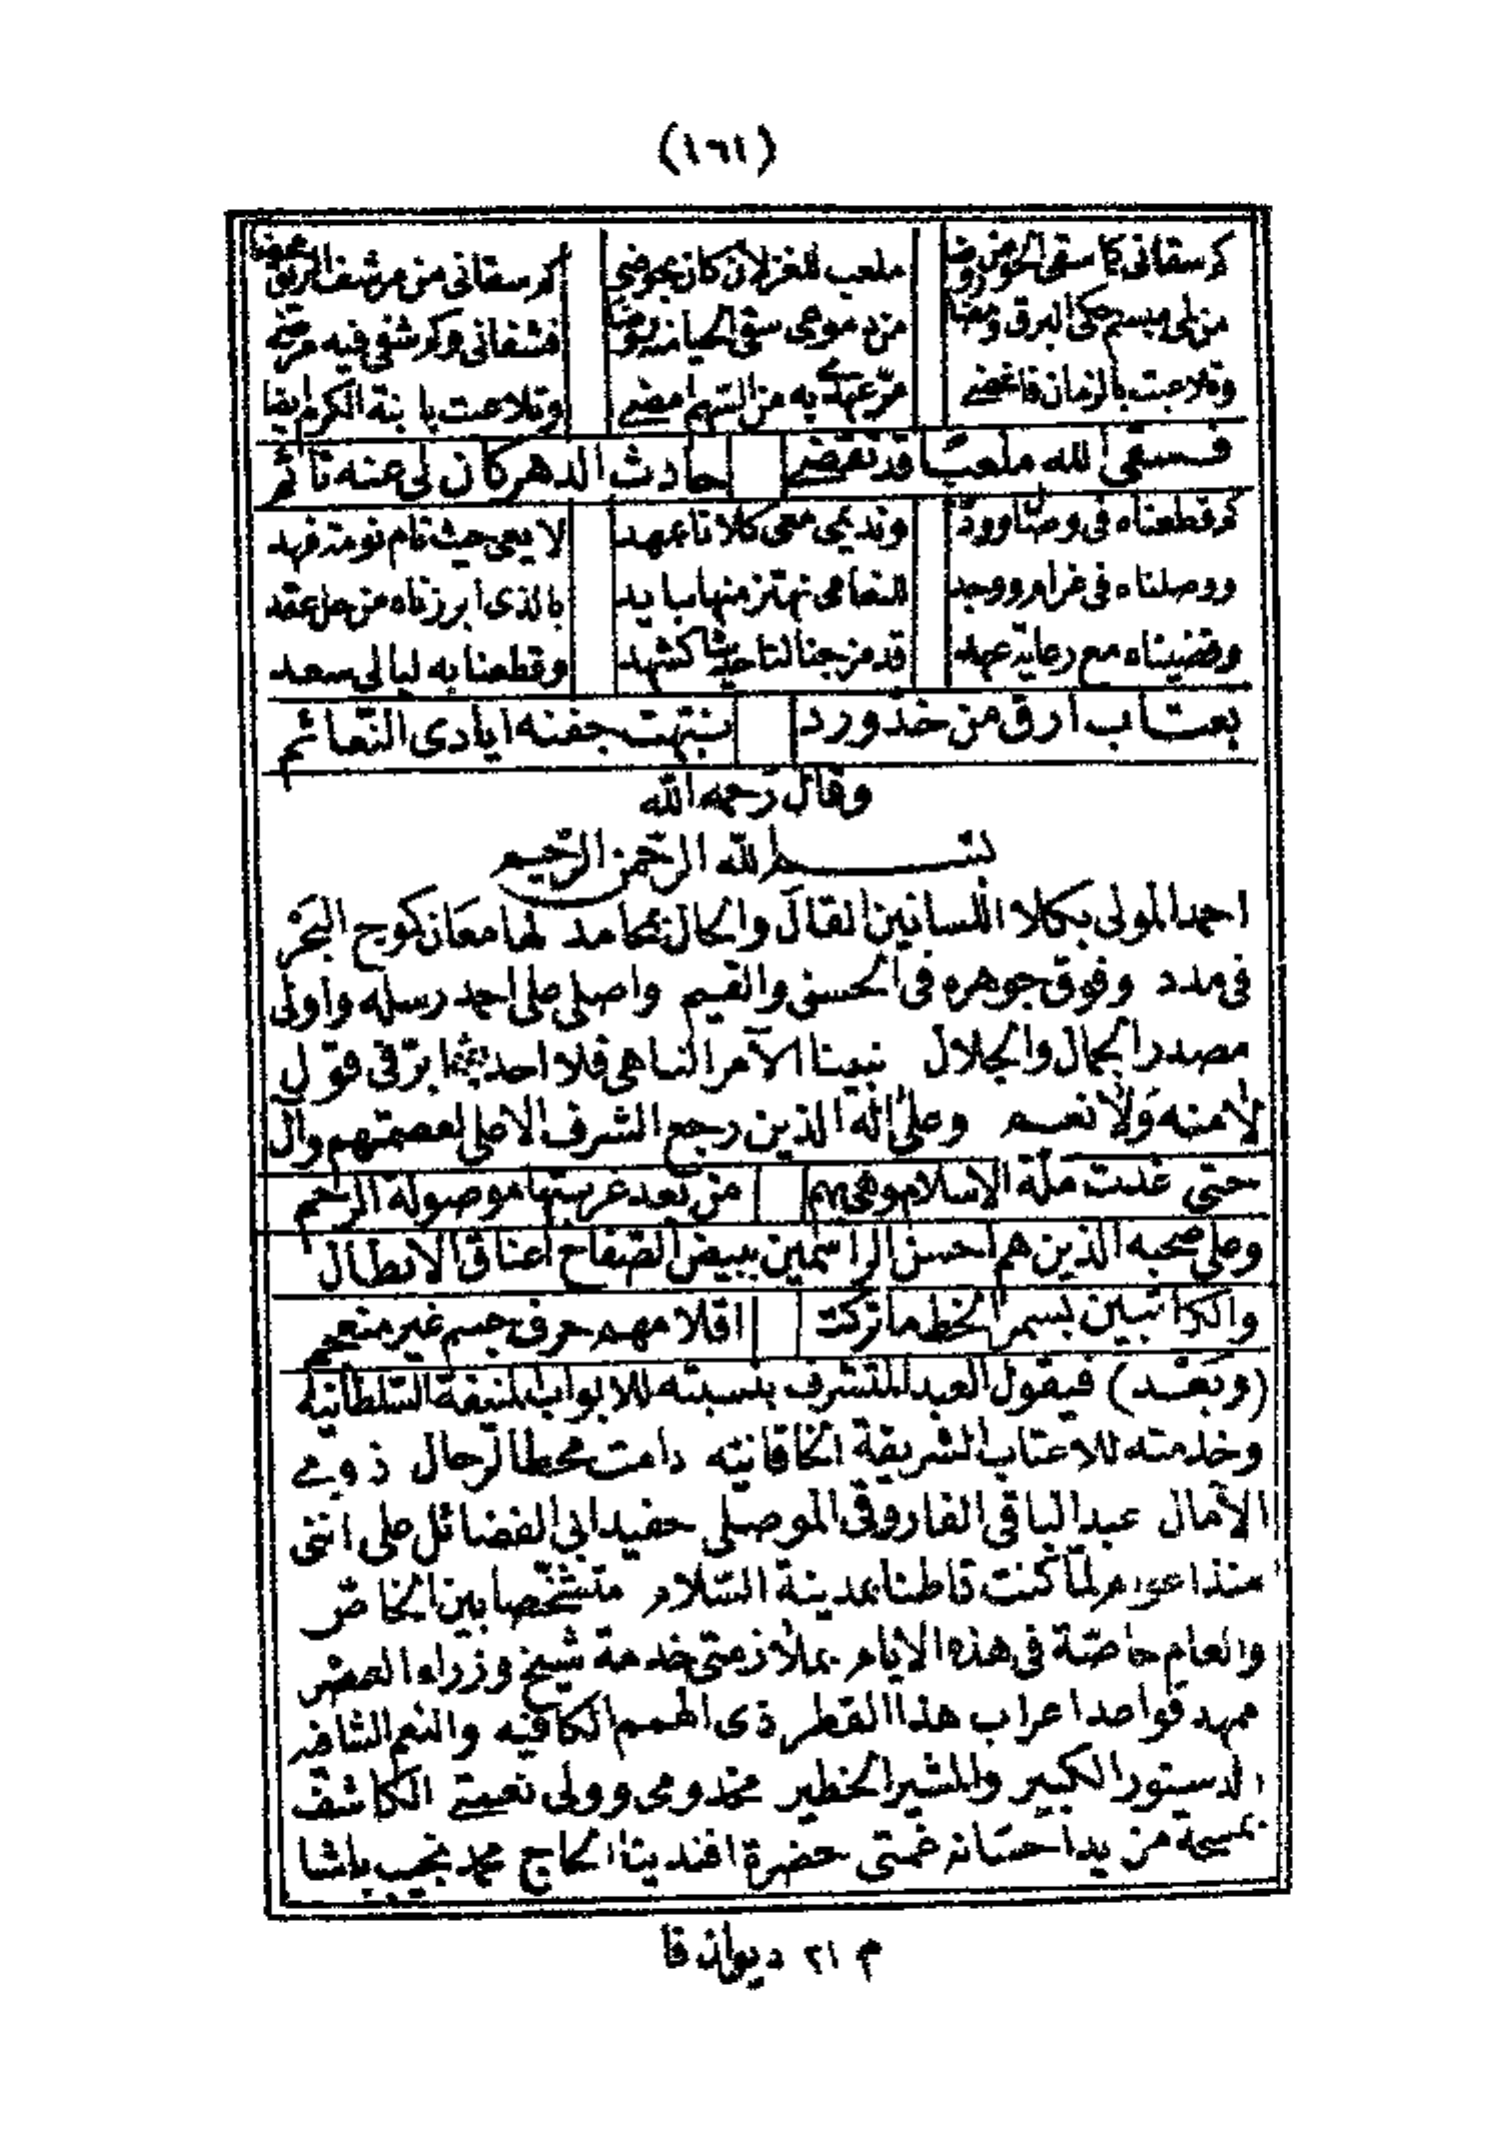 (١٦١)
كم سقانى كما سقى الحوض روضا ملعب للغزلان كان بحوضى كم سقانى من مرشف الريق محضا
من لمى مبسم حكى البرق ومضا من دموعى سقى الحيا منه روضا فشفانى وكم شفى فيه مرضى
وتلاعبت بالزمان فاغضى مرّ عهدى به من السهم امضى وتلاعبت بابنة الكرم ايضا
فسقى الله ملعبا قد تقضى حادث الدهر كان لى عنه نائم
كم قطعناه فى وصال وود ونديمى معى كلانا بمهد لا يعى حيث نام نومة فهد
ووصلناه فى غرام ووجد للنعامى نهتز منها بايد بالذى ابرزناه من حل عقد
وقضيناه مع رعاية عهد قد مزجنا لنا حديثا كشهد وقطعنا به ليالى سعد
بعتاب ارق من خد ورد نبهت جفنه ايادى النعائم
وقال رحمه الله
بسم الله الرحمن الرحيم
احمد المولى بكلا اللسانين القال والحال بمحامد لها معان كموج البحر
فى مدد وفوق جوهره فى الحسن والقيم واصلى على احمد رسله واولى
مصدر الجمال والجلال نبينا الآمر الناهى فلا احد ابر فى قول
لا منه ولا نعم وعلى اله الذين رجع الشرف الاعلى لعصمتهم وال
حتى غدت ملة الاسلام وهى بهم من بعد غربتها موصولة الرحم
وعلى صحبه الذين هم احسن الراسمين ببيض الصفاح اعناق الابطال
والكاتبين بسمر الخط ما تركت اقلامهم حرف جسم غير منعجم
(وبعد) فيقول العبد المتشرف بنسبته للابواب المنيفة السلطانيه
وخدمته للاعتاب الشريفة الخاقانيه دامت محط الرحال ذوى
الآمال عبد الباقى الفاروقى الموصلى حفيد ابى الفضائل على اننى
منذ اعوام لما كنت قاطنا بمدينة السلام متشخصا بين الخاص
والعام خاصة فى هذه الايام بملازمتى خدمة شيخ وزراء العصر
ممهد قواعد اعراب هذا القطر ذى الهمم الكافيه والنعم الشافيه
الدستور الكبير والمشير الخطير مخدومى وولى نعمتى الكاشف
بمسحة من يد احسانه غمتى حضرة افندينا الحاج محمد نجيب باشا
م ٢١ ديوان فا